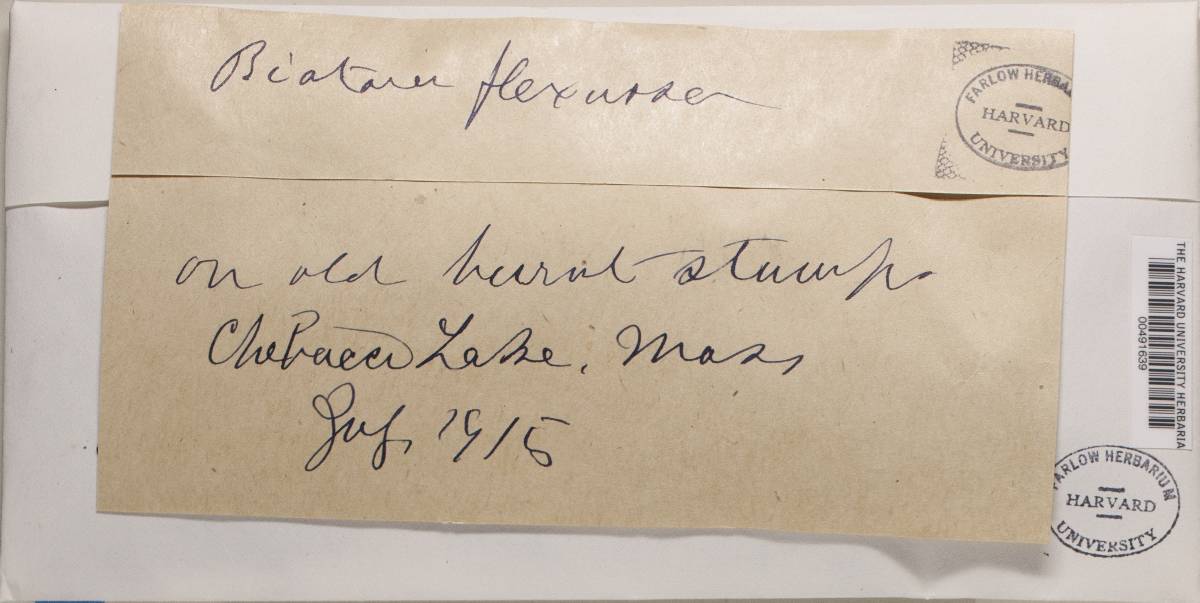 Biatora flexuosa
FARLOW HERBA
HARVARD
UNIVERSITY
on old burnt stumps
Chebacco Lake, Mass
July, 1915
THE HARVARD UNIVERSITY HERBARIA
00491639
FARLOW HERBARIUM
HARVARD
UNIVERSITY